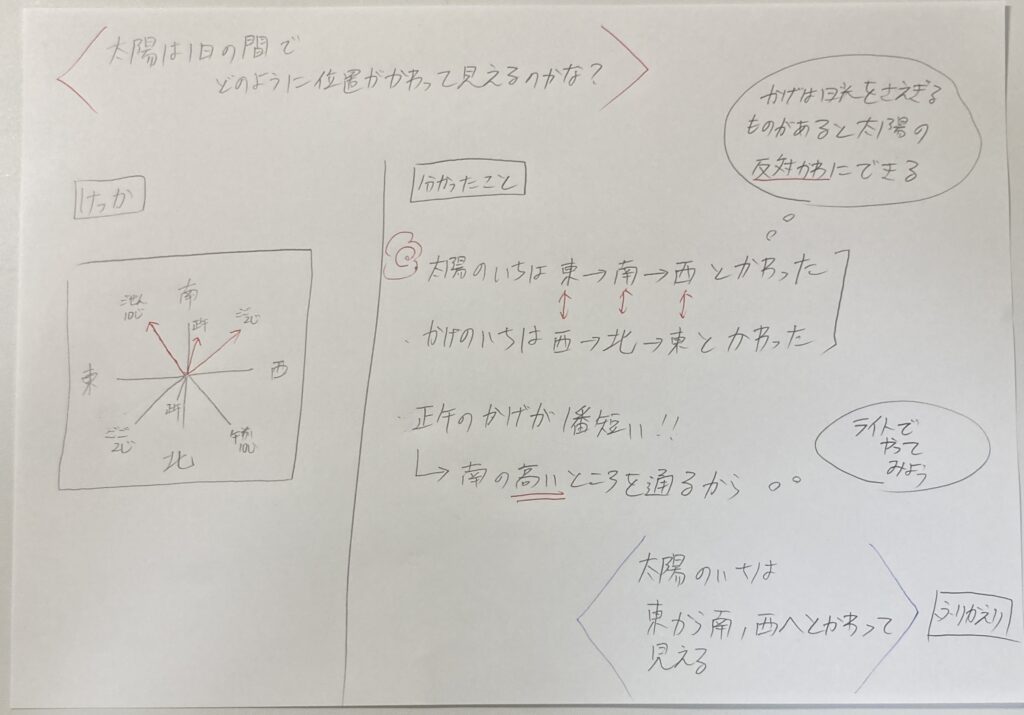 太陽は1日の間で
どのように位置がかわって見えるのかな?
かげは日光をさえぎる
ものがあると太陽の
反対がわにできる
けっか
南
ごぜん
10じ
正午
ごご
2じ
東
西
正午
ごご
2じ
午前
10じ
北
分かったこと
太陽のいちは東→南→西とかわった
・かげのいちは西→北→東とかわった
・正午のかげが1番短い!!
→南の高いところを通るから
ライトで
やって
みよう
太陽のいちは
東から南,西へとかわって
見える
ふりかえり